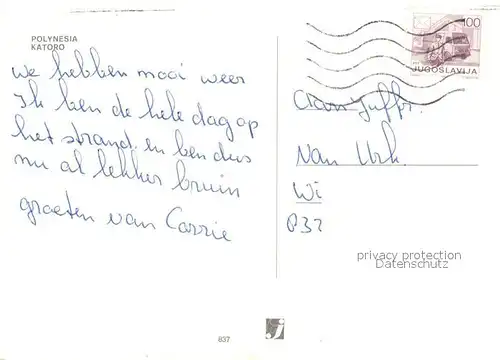 POLYNESIA
KATORO
we hebben mooi weer
Ik ben de hele dag op
het strand. en ben dus
nu al lekker bruin
groeten van Corrie
100
JUGOSLAVIJA
Aan Juffr.
van Urk.
Wi
P32
privacy protection
Datenschutz
837
j